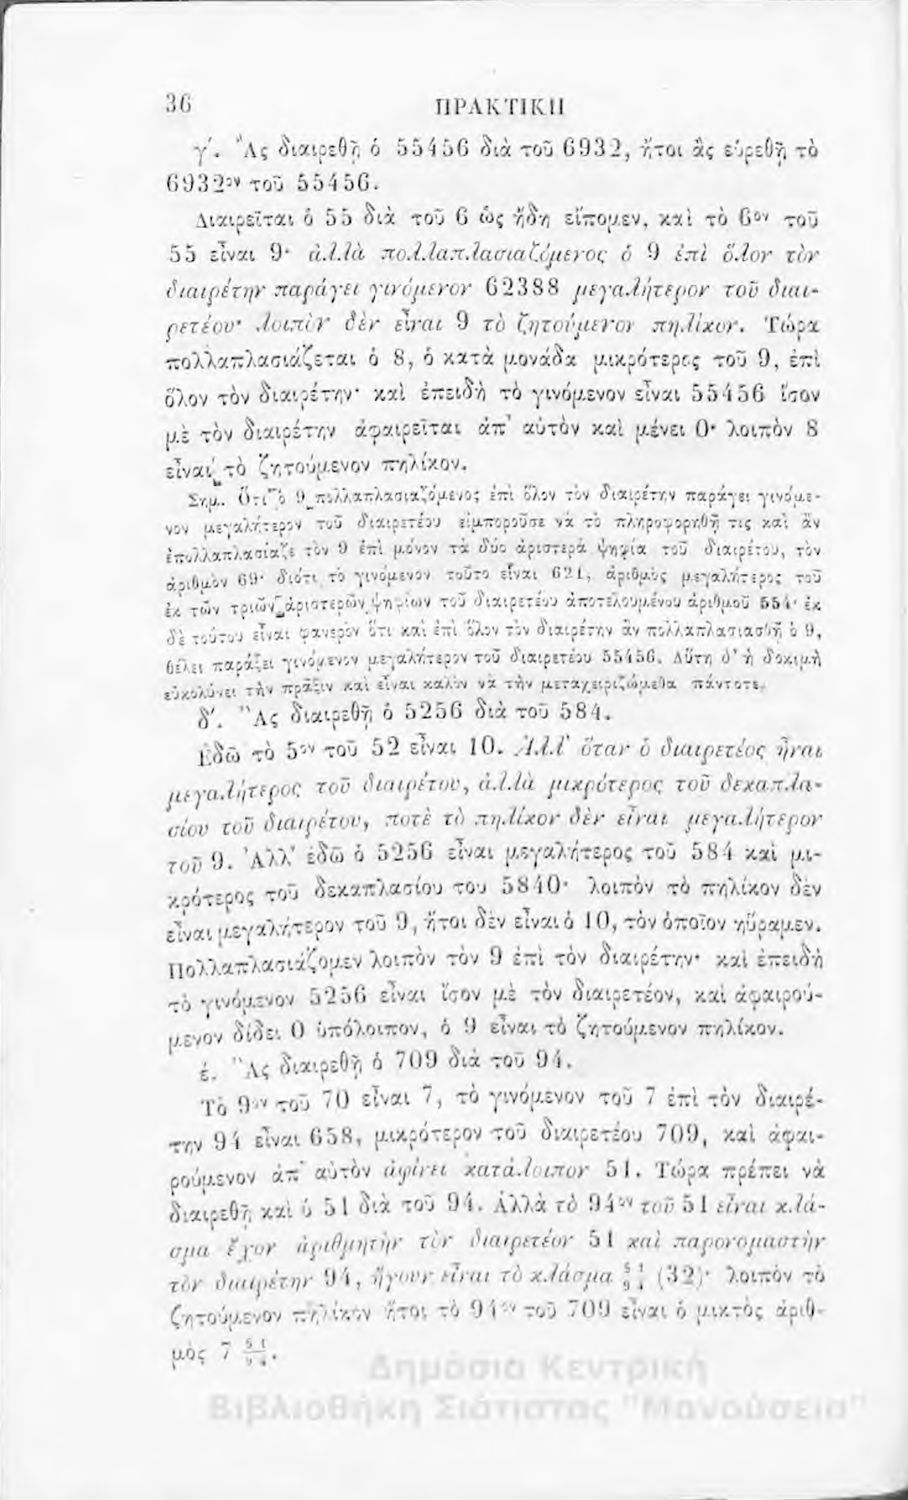 36 ΠΡΑΚΤΙΚΗ
γ΄. Ἂς διαιρεθῇ ὁ 55456 διὰ τοῦ 6932, ἤτοι ἂς εὑρεθῇ τὸ
6932ον τοῦ 55456.
Διαιρεῖται ὁ 55 διὰ τοῦ 6 ὡς ἤδη εἴπομεν, καὶ τὸ 6ον τοῦ
55 εἶναι 9· ἀλλὰ πολλαπλασιαζόμενος ὁ 9 ἐπὶ ὅλον τὸν
διαιρέτην παράγει γινόμενον 62388 μεγαλήτερον τοῦ διαι-
ρετέου· λοιπὸν δὲν εἶναι 9 τὸ ζητούμενον πηλίκον. Τώρα
πολλαπλασιάζεται ὁ 8, ὁ κατὰ μονάδα μικρότερος τοῦ 9, ἐπὶ
ὅλον τὸν διαιρέτην· καὶ ἐπειδὴ τὸ γινόμενον εἶναι 55456 ἴσον
μὲ τὸν διαιρέτην ἀφαιρεῖται ἀπ' αὐτὸν καὶ μένει 0· λοιπὸν 8
εἶναι τὸ ζητούμενον πηλίκον.
Σημ. Ὅτι ὁ 9 πολλαπλασιαζόμενος ἐπὶ ὅλον τὸν διαιρέτην παράγει γινόμε-
νον μεγαλήτερον τοῦ διαιρετέου εἰμποροῦσε νὰ τὸ πληροφορηθῇ τις καὶ ἂν
ἐπολλαπλασίαζε τὸν 9 ἐπὶ μόνον τὰ δύο ἀριστερὰ ψηφία τοῦ διαιρέτου, τὸν
ἀριθμὸν 69· διότι τὸ γινόμενον τοῦτο εἶναι 621, ἀριθμὸς μεγαλήτερος τοῦ
ἐκ τῶν τριῶν ἀριστερῶν ψηφίων τοῦ διαιρετέου ἀποτελουμένου ἀριθμοῦ 554· ἐκ
δὲ τούτου εἶναι φανερὸν ὅτι καὶ ἐπὶ ὅλον τὸν διαιρέτην ἂν πολλαπλασιασθῇ ὁ 9,
θέλει παράξει γινόμενον μεγαλήτερον τοῦ διαιρετέου 55456. Αὕτη δ' ἡ δοκιμὴ
εὐκολύνει τὴν πρᾶξιν καὶ εἶναι καλὸν νὰ τὴν μεταχειριζώμεθα πάντοτε.
δ΄. Ἂς διαιρεθῇ ὁ 5256 διὰ τοῦ 584.
Ἐδῶ τὸ 5ον τοῦ 52 εἶναι 10. Ἀλλ' ὅταν ὁ διαιρετέος ἦναι
μεγαλήτερος τοῦ διαιρέτου, ἀλλὰ μικρότερος τοῦ δεκαπλα-
σίου τοῦ διαιρέτου, ποτὲ τὸ πηλίκον δὲν εἶναι μεγαλήτερον
τοῦ 9. Ἀλλ' ἐδῶ ὁ 5256 εἶναι μεγαλήτερος τοῦ 584 καὶ μι-
κρότερος τοῦ δεκαπλασίου του 5840· λοιπὸν τὸ πηλίκον δὲν
εἶναι μεγαλήτερον τοῦ 9, ἤτοι δὲν εἶναι ὁ 10, τὸν ὁποῖον ηὕραμεν.
Πολλαπλασιάζομεν λοιπὸν τὸν 9 ἐπὶ τὸν διαιρέτην· καὶ ἐπειδὴ
τὸ γινόμενον 5256 εἶναι ἴσον μὲ τὸν διαιρετέον, καὶ ἀφαιρού-
μενον δίδει 0 ὑπόλοιπον, ὁ 9 εἶναι τὸ ζητούμενον πηλίκον.
έ. Ἂς διαιρεθῇ ὁ 709 διὰ τοῦ 94.
Τὸ 9ον τοῦ 70 εἶναι 7, τὸ γινόμενον τοῦ 7 ἐπὶ τὸν διαιρέ-
την 94 εἶναι 658, μικρότερον τοῦ διαιρετέου 709, καὶ ἀφαι-
ρούμενον ἀπ' αὐτὸν ἀφίνει κατάλοιπον 51. Τώρα πρέπει νὰ
διαιρεθῇ καὶ ὁ 51 διὰ τοῦ 94. Ἀλλὰ τὸ 94ον τοῦ 51 εἶναι κλά-
σμα ἔχον ἀριθμητὴν τὸν διαιρετέον 51 καὶ παρονομαστὴν
τὸν διαιρέτην 94, ἤγουν εἶναι τὸ κλάσμα 51/94 (32)· λοιπὸν τὸ
ζητούμενον πηλίκον ἤτοι τὸ 94ον τοῦ 709 εἶναι ὁ μικτὸς ἀριθ-
μὸς 7 51/94.
Δημόσια Κεντρική
Βιβλιοθήκη Σιάτιστας "Μανούσεια"